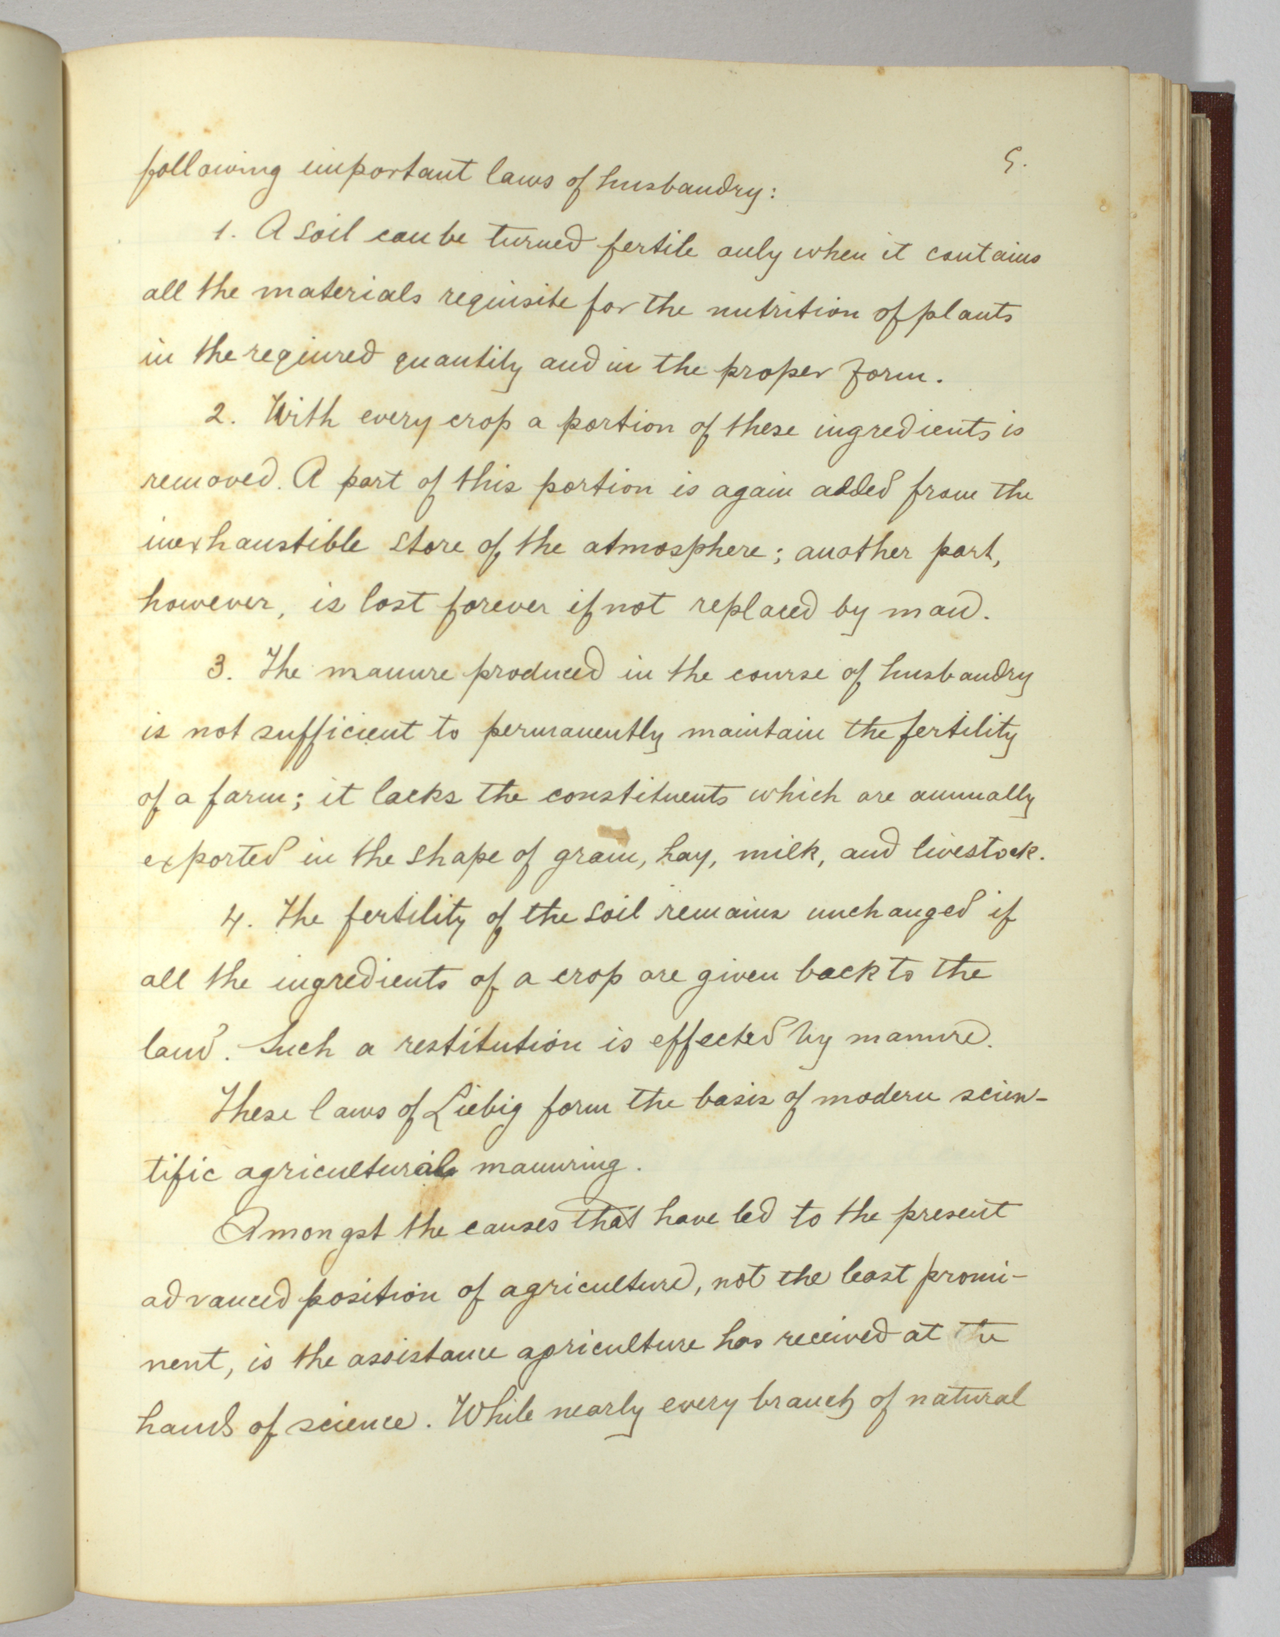 5.
following important laws of husbandry:
1. A soil can be turned fertile only when it contains
all the materials requisite for the nutrition of plants
in the required quantity and in the proper form.
2. With every crop a portion of these ingredients is
removed. A part of this portion is again added from the
inexhaustible store of the atmosphere; another part,
however, is lost forever if not replaced by man.
3. The manure produced in the course of husbandry
is not sufficient to permanently maintain the fertility
of a farm; it lacks the constituents which are annually
exported in the shape of grain, hay, milk, and livestock.
4. The fertility of the soil remains unchanged if
all the ingredients of a crop are given back to the
land. Such a restitution is effected by manure.
These laws of Liebig form the basis of modern scien-
tific agricultural manuring.
Amongst the causes that have led to the present
advanced position of agriculture, not the least promi-
nent, is the assistance agriculture has received at the
hands of science. While nearly every branch of natural